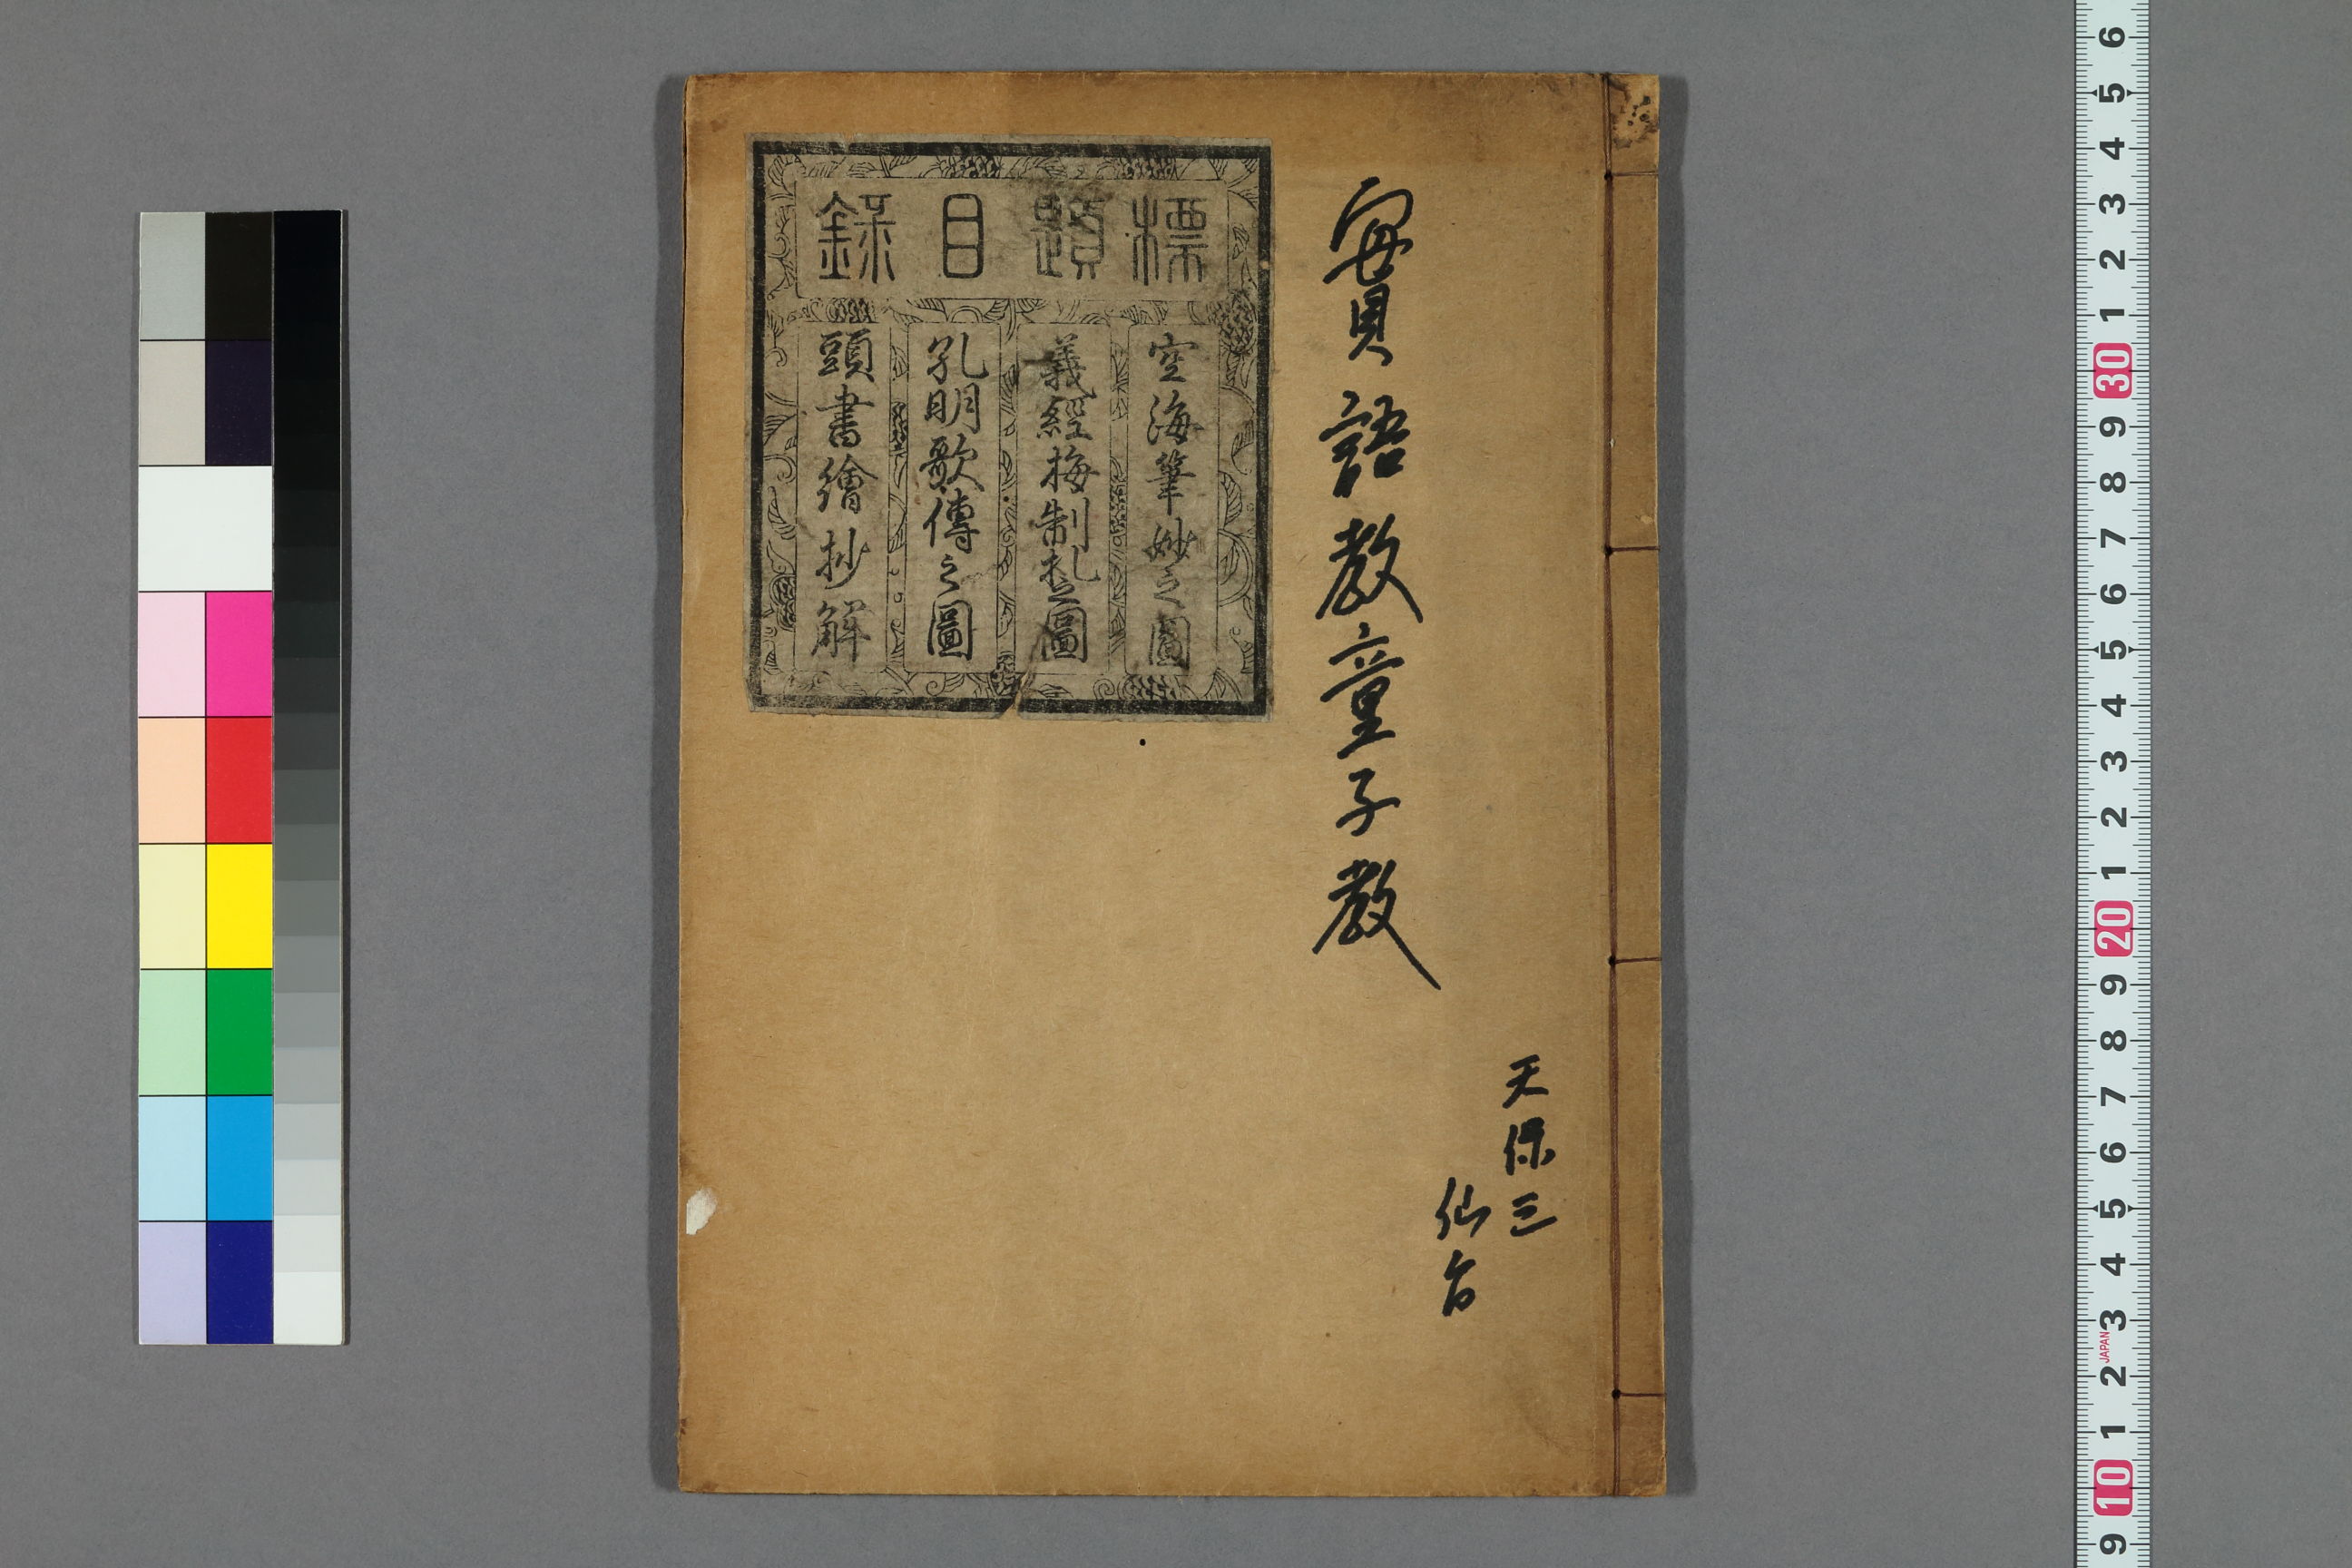 實語教童子教
天保三
仙台
標題目録
空海筆妙之圖
義經梅制札之圖
孔明歌傳之圖
頭書繪抄解
6 5 4 3 2 1 30 9 8 7 6 5 4 3 2 1 20 9 8 7 6 5 4 3 2 1 10 9
JAPAN